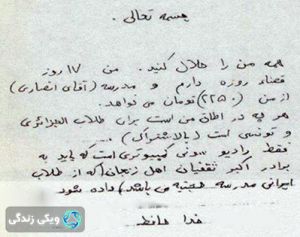 بسمه تعالی
همه من را حلال کنید. من ۱۷ روز
قضاء روزه دارم و مدرسه (آقای انصاری)
از من (۲۲۵۰) تومان می خواهد.
هر چه در اطاق من است برای طلاب الجزائری
و تونسی است (بالاشتراک)
فقط رادیو سونی کامپیوتری است که باید به
برادر اکبر ثقفیان اهل زنجان (که از طلاب
ایرانی مدرسه حجتیه می باشد) داده شود
خدا حافظ
ویکی زندگی